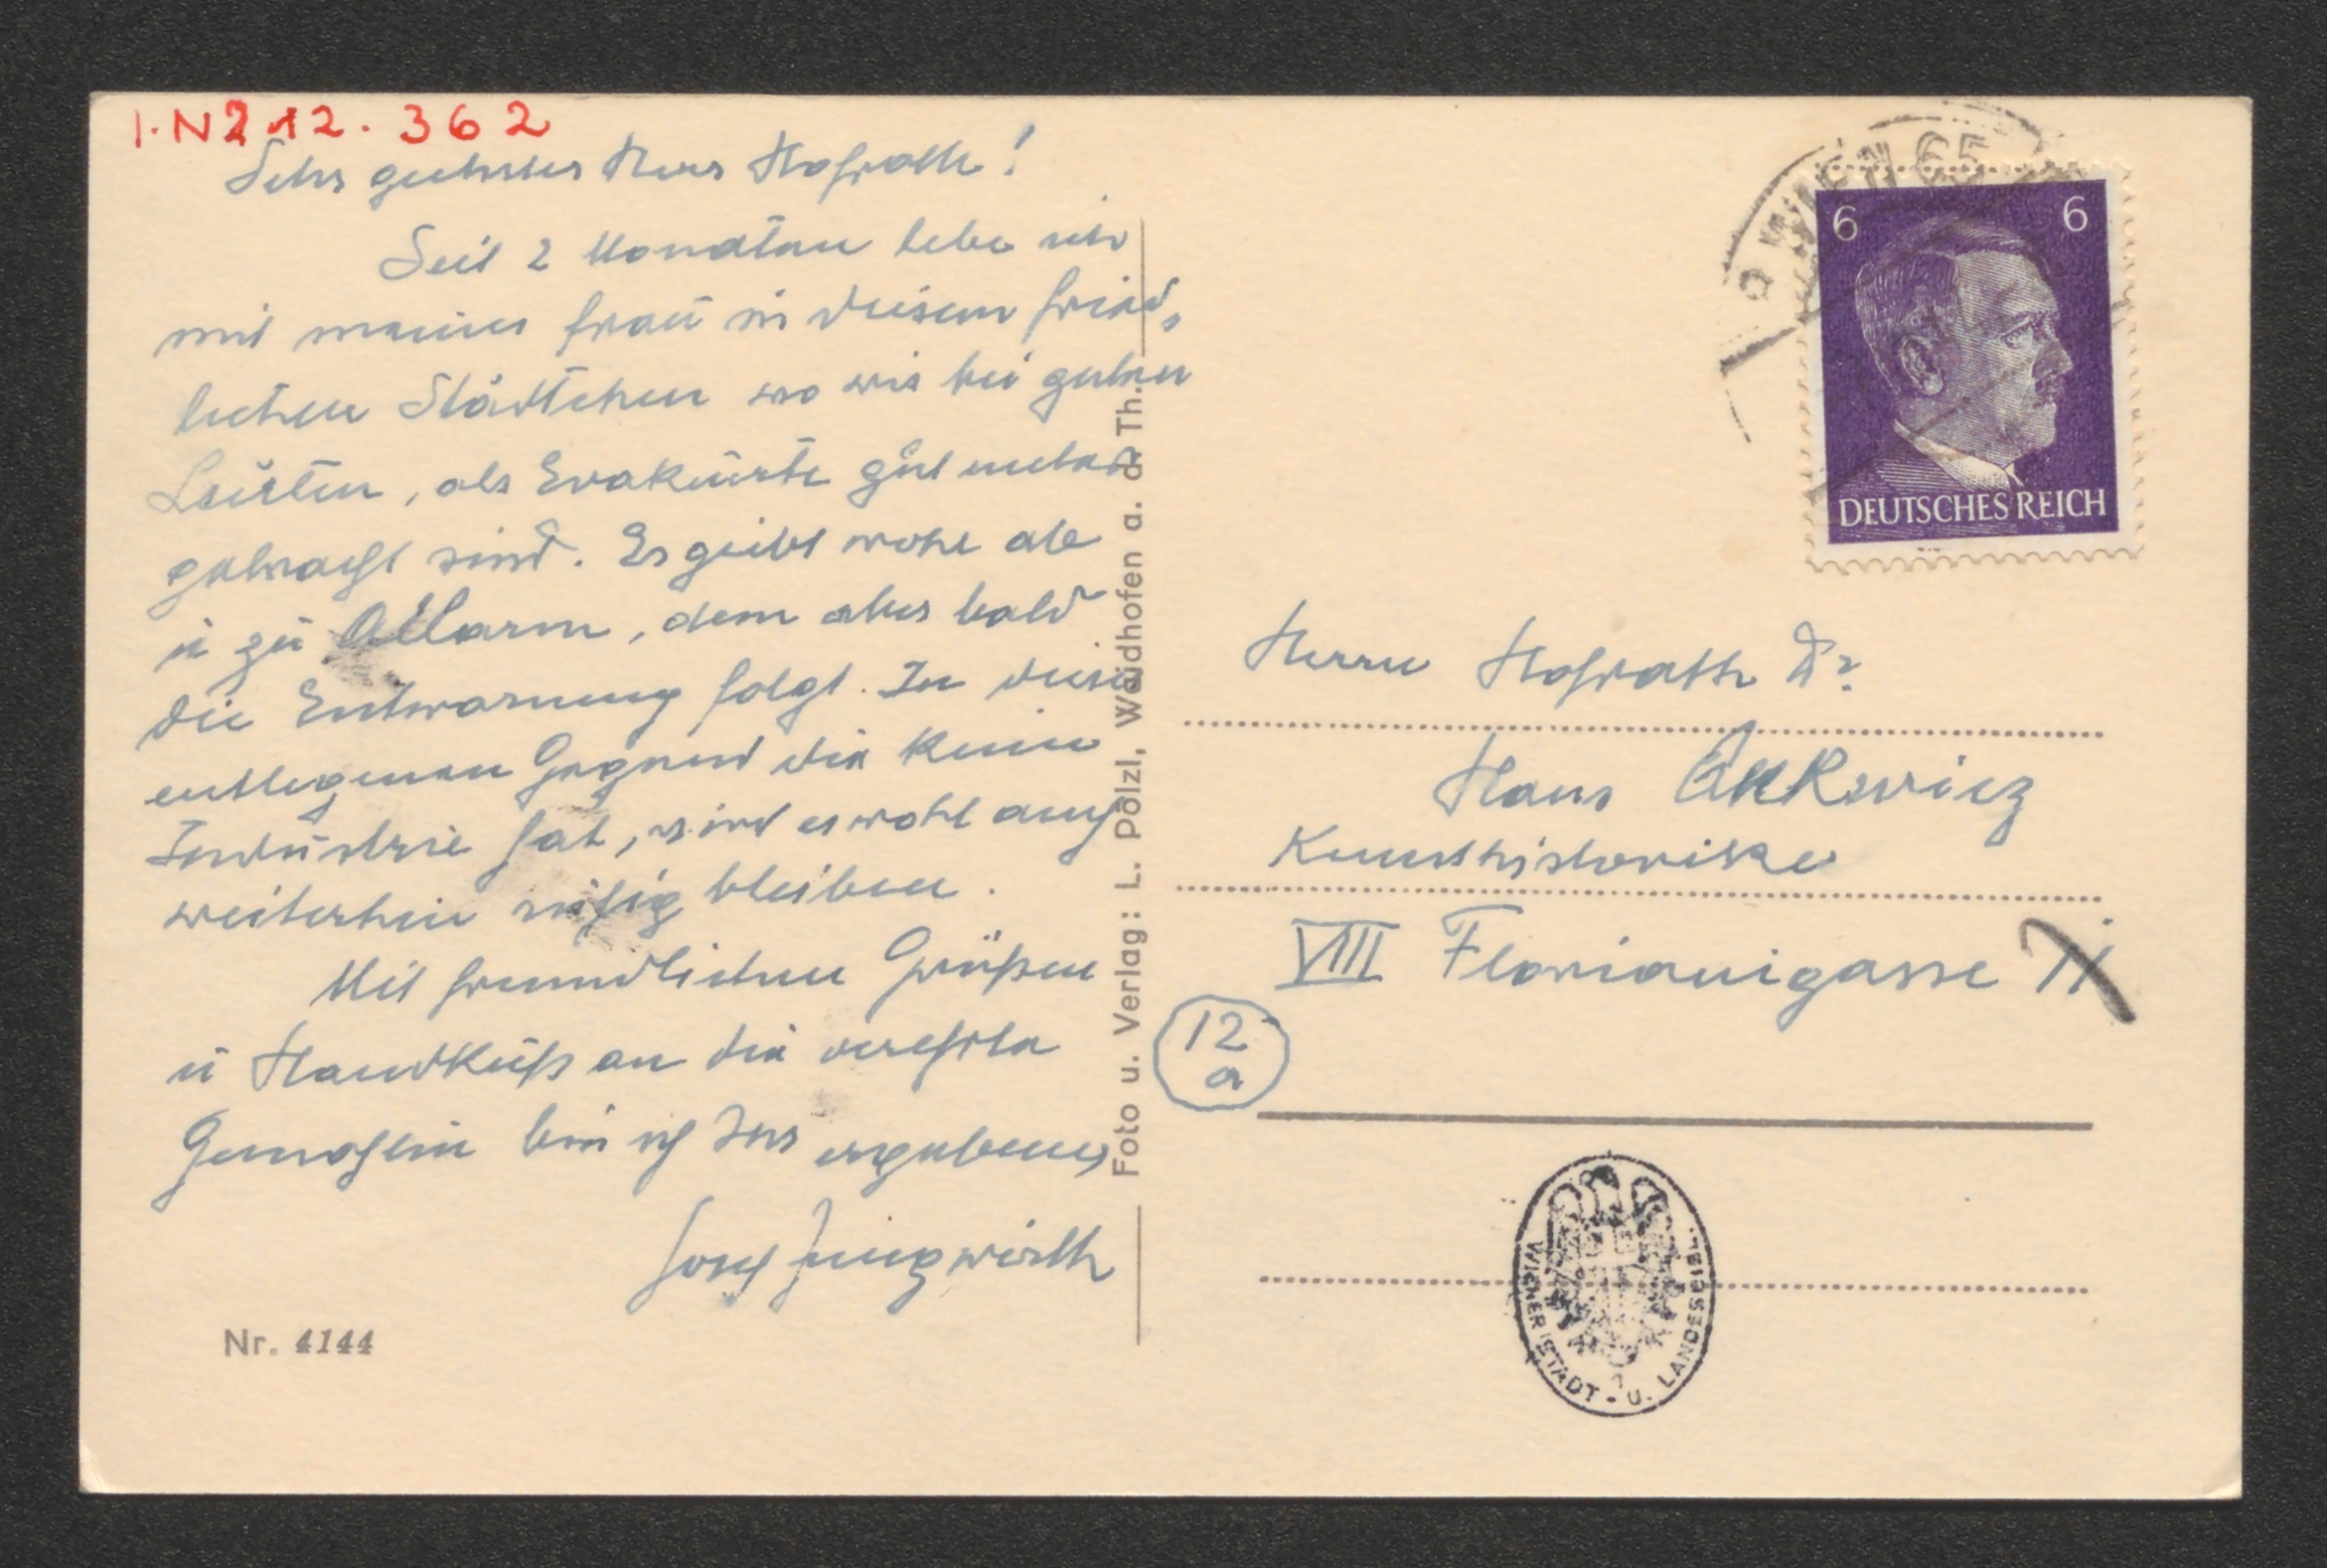 I.N 212.362
Sehr geehrter Herr Hofrath!
Seit 2 Monaten lebe ich
mit meiner Frau in diesem fried,
lichen Städtchen wo wir bei guten
Leuten, als Evakuirte gut unter
gebracht sind. Es giebt wohl ab
u zu Allarm, dem aber bald
die Entwarnung folgt. In dieser
entlegenen Gegend die keine
Industrie hat, wird es wohl auch
weiterhin ruhig bleiben.
Mit freundlichen Grüßen
u Handkuß an die verehrte
Gemahlin bin ich Ihr ergebener
Josef Jungwirth
Nr. 4144
Foto u. Verlag: L. Pölzl, Waidhofen a. d. Th.
WIEN 65
6 6
DEUTSCHES REICH
Herrn Hofrath Dr
Hans Ankwicz
Kunsthistoriker
VIII Florianigasse
12
a
WIENER STADT - U. LANDESBIBL.